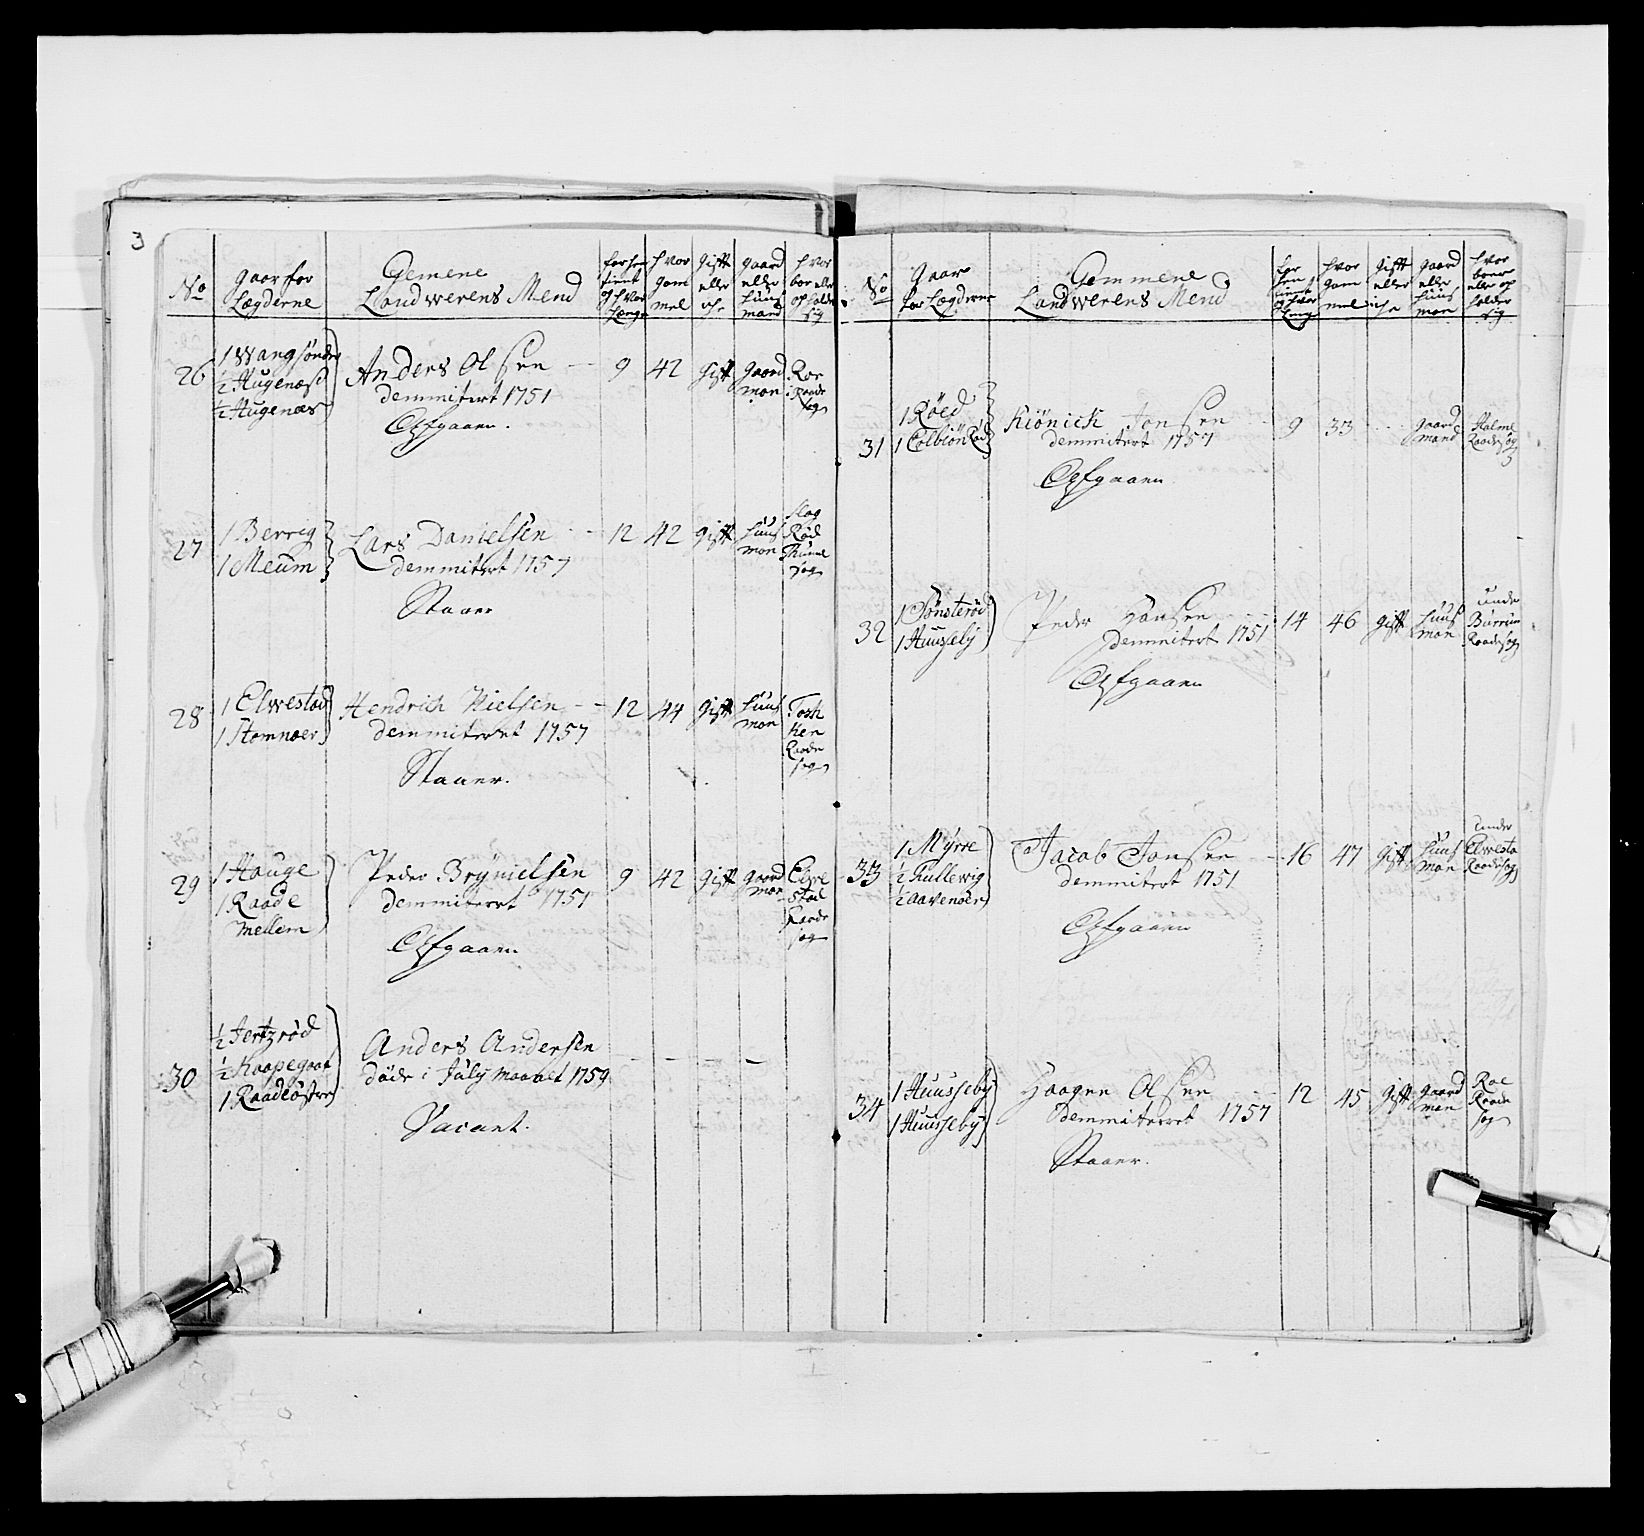 3
No
gaar for
Legderne
Gemene
Landwerens Mend
for hen
tient
og hvor
Længe
hvor
gam
mel
gift
eller
ey
gaard
eller
huus
mand
hvor
boer eller
opholder
sig
26
1 Wangsøndre
1/2 Hugenæs
1/2 Hugenæs
Anders Olsen
demmitert 1751
Afgaaen.
9
42
gift
gaard
man
Roe
i Raade
sogn
27
1 Berrig
1 Meüm
Lars Danielsen
demmitert 1757
Staaer
12
42
gift
huus
man
Rød
Thune
sogn
28
1 Elwestad
1 Stomnaer
Hendrich Nielsen
demmiteret 1757
Staaer.
12
44
gift
huus
man
Raade
sogn
29
1 Hauge
1 Raade
mellem
Peder Brynielsen
demmiteret 1751
Afgaaen
9
42
gift
gaard
man
Elwe
stad
Raade
sogn
30
1/2 Jertzrød
1/2 Kaapegaat
1 Raadeøstre
Anders Andersen
døde i July maanet 1759
Vacant.
No
Gaar
for Legderne
Gemmene
Landwerens Mend
for
hen
tient
og hvor
leng
hvor
gam
mel
gift
eller
ey
gaard
eller
huus
man
hvor
boer
eller op
holder
sig
31
1 Røed
1 Colbiönrød
Kiönich Jonsen
demmitert 1757
Afgaaen
9
33
gaard
mand
Holme
Raadesog
32
1 Tønsterød
1 Huusseby
Peder Hansen
demmitert 1751
Afgaaen
14
46
gift
huus
man
under
Burrum
Raadesog
33
1 Myrre
1/2 Kullewig
1/2 Aavenøen
Jacob Jonsen
demmitert 1751
Afgaaen
16
47
gift
huus
man
under
Elwesta
Raadesog
34
1 Huusseby
1 Huusseby
Haagen Olsen
demmiteret 1757
Staaer.
12
45
gift
gaard
man
Roe
Raade
sogn